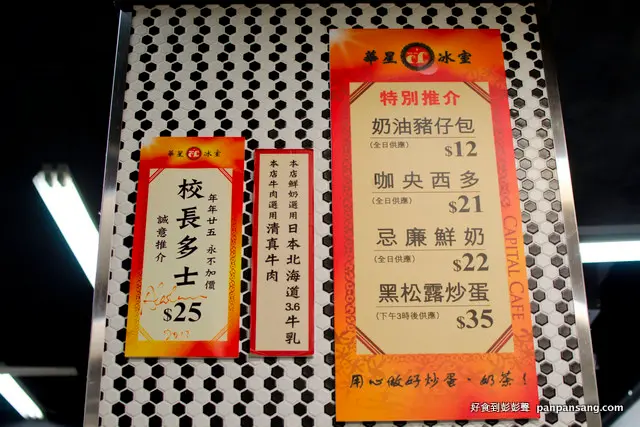 華星 冰室
校長多士
年年廿五 永不加價
誠意推介
$25
2017
本店鮮奶選用日本北海道3.6牛乳
本店牛肉選用清真牛肉
華星 冰室
特別推介
奶油豬仔包
(全日供應) $12
咖央西多
(全日供應) $21
忌廉鮮奶
(全日供應) $22
黑松露炒蛋
(下午3時後供應) $35
CAPITAL CAFE
用心做好炒蛋·奶茶!
好食到彭彭聲 panpansang.com